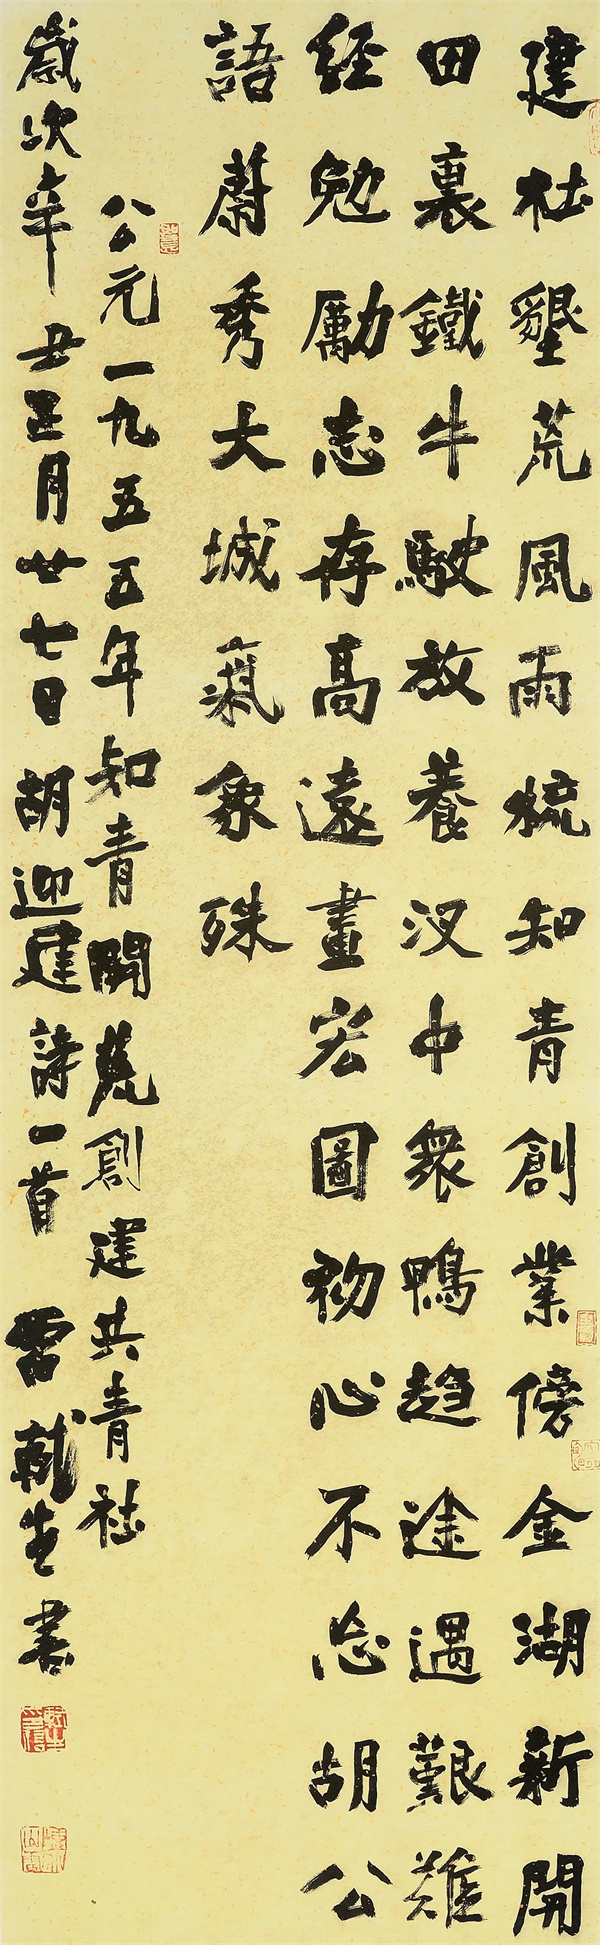 建社墾荒風雨梳知青創業傍金湖新開
田裏鐵牛駛放養汊中衆鴨趋途遇艱難
經勉勵志存高遠畫宏圖初心不忘胡公
語蔚秀大城氣象殊
公元一九五五年知青開荒創建共青社
歲次辛丑正月廿七日胡迎建詩一首 雷生書